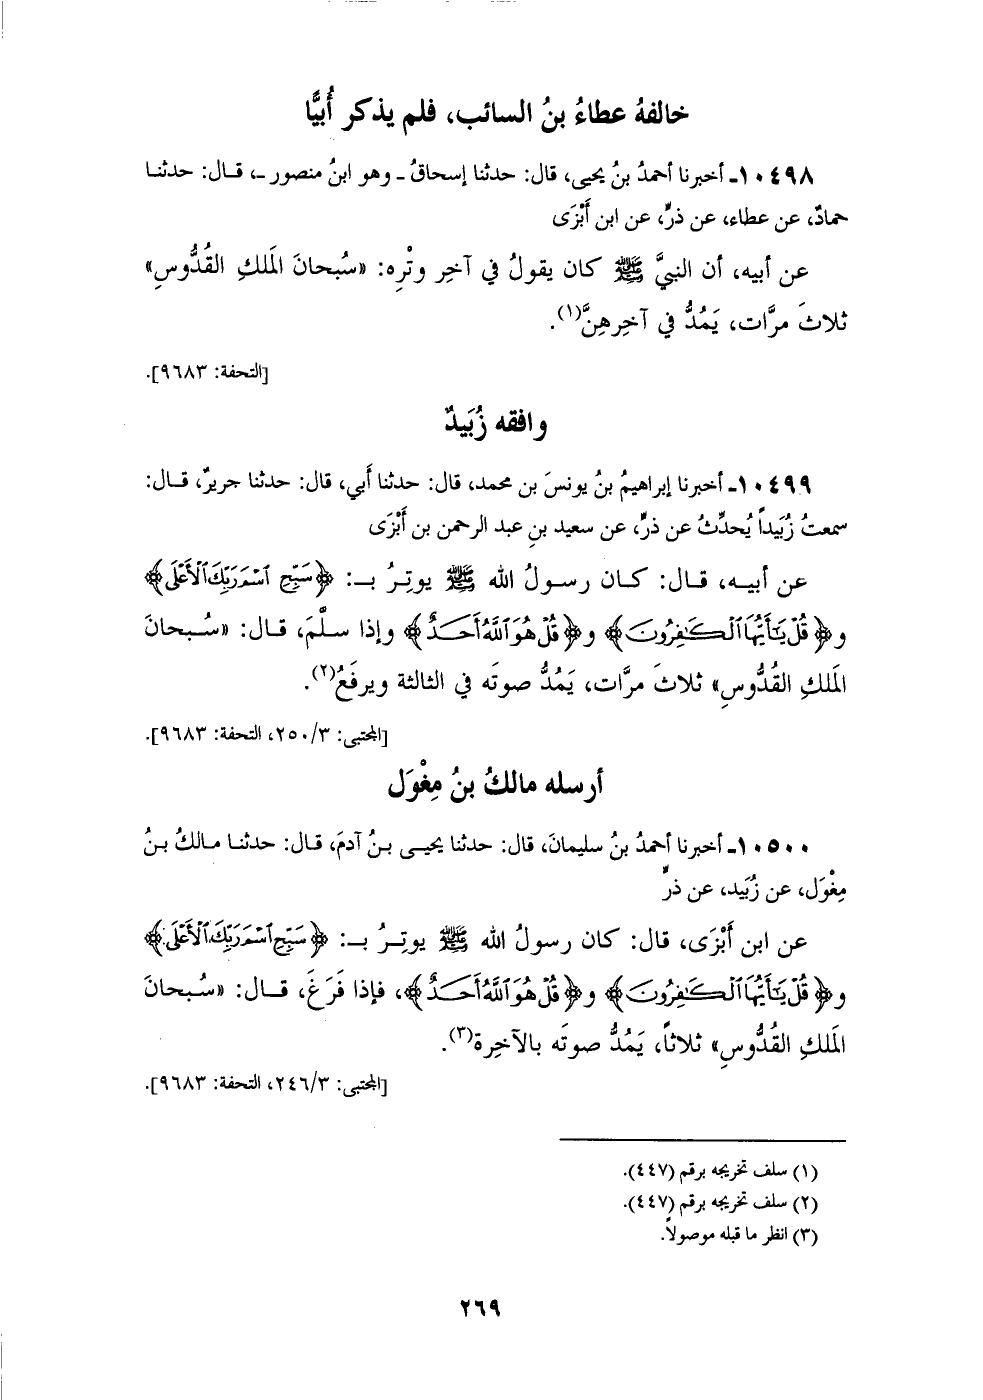 خالفهُ عطاءُ بنُ السائب، فلم يذكر أُبيًّا
١٠٤٩٨ـ أخبرنا أحمدُ بنُ يحيى، قال: حدثنا إسحاقُ ـ وهو ابنُ منصور ـ، قـال: حدثنـا
حمادٌ، عن عطاء، عن ذرٍّ، عن ابن أَبْزَى
عن أبيه، أن النبيَّ ﷺ كان يقولُ في آخِر وتْرِه: «سُبحانَ المَلكِ القُدُّوسِ»
ثلاثَ مرَّات، يَمُدُّ في آخِرِهِنَّ(١).
[التحفة: ٩٦٨٣].
وافقه زُبَيدٌ
١٠٤٩٩ـ أخبرنا إبراهيمُ بنُ يونسَ بن محمد، قال: حدثنا أَبي، قال: حدثنا جريرٌ، قـال:
سمعتُ زُبَيداً يُحدِّثُ عن ذرٍّ، عن سعيد بنِ عبد الرحمن بن أَبْزَى
عن أبيـه، قـال: كـان رسـولُ الله ﷺ يوتِـرُ بـ: ﴿سَبِّحِ ٱسْمَ رَبِّكَ ٱلْأَعْلَى﴾
و﴿قُلْ يَٰٓأَيُّهَا ٱلْكَٰفِرُونَ﴾ و﴿قُلْ هُوَ ٱللَّهُ أَحَدٌ﴾ وإذا سلَّمَ، قـال: «سُـبحانَ
المَلكِ القُدُّوسِ» ثلاثَ مرَّات، يَمُدُّ صوتَه في الثالثة ويرفَعُ(٢).
[المجتبى: ٢٥٠/٣، التحفة: ٩٦٨٣].
أرسله مالكُ بنُ مِغْوَل
١٠٥٠٠ـ أخبرنا أحمدُ بنُ سليمانَ، قال: حدثنا يحيـى بـنُ آدمَ، قـال: حدثنـا مـالكُ بـنُ
مِغْوَل، عن زُبَيد، عن ذرٍّ
عن ابن أَبْزَى، قال: كان رسولُ الله ﷺ يوتِـرُ بـ: ﴿سَبِّحِ ٱسْمَ رَبِّكَ ٱلْأَعْلَى﴾
و﴿قُلْ يَٰٓأَيُّهَا ٱلْكَٰفِرُونَ﴾ و﴿قُلْ هُوَ ٱللَّهُ أَحَدٌ﴾، فإذا فَرَغَ، قـال: «سُبحانَ
المَلكِ القُدُّوسِ» ثلاثاً، يَمُدُّ صوتَه بالآخِرة(٣).
[المجتبى: ٢٤٦/٣، التحفة: ٩٦٨٣].
(١) سلف تخريجه برقم (٤٤٧).
(٢) سلف تخريجه برقم (٤٤٧).
(٣) انظر ما قبله موصولاً.
٢٦٩